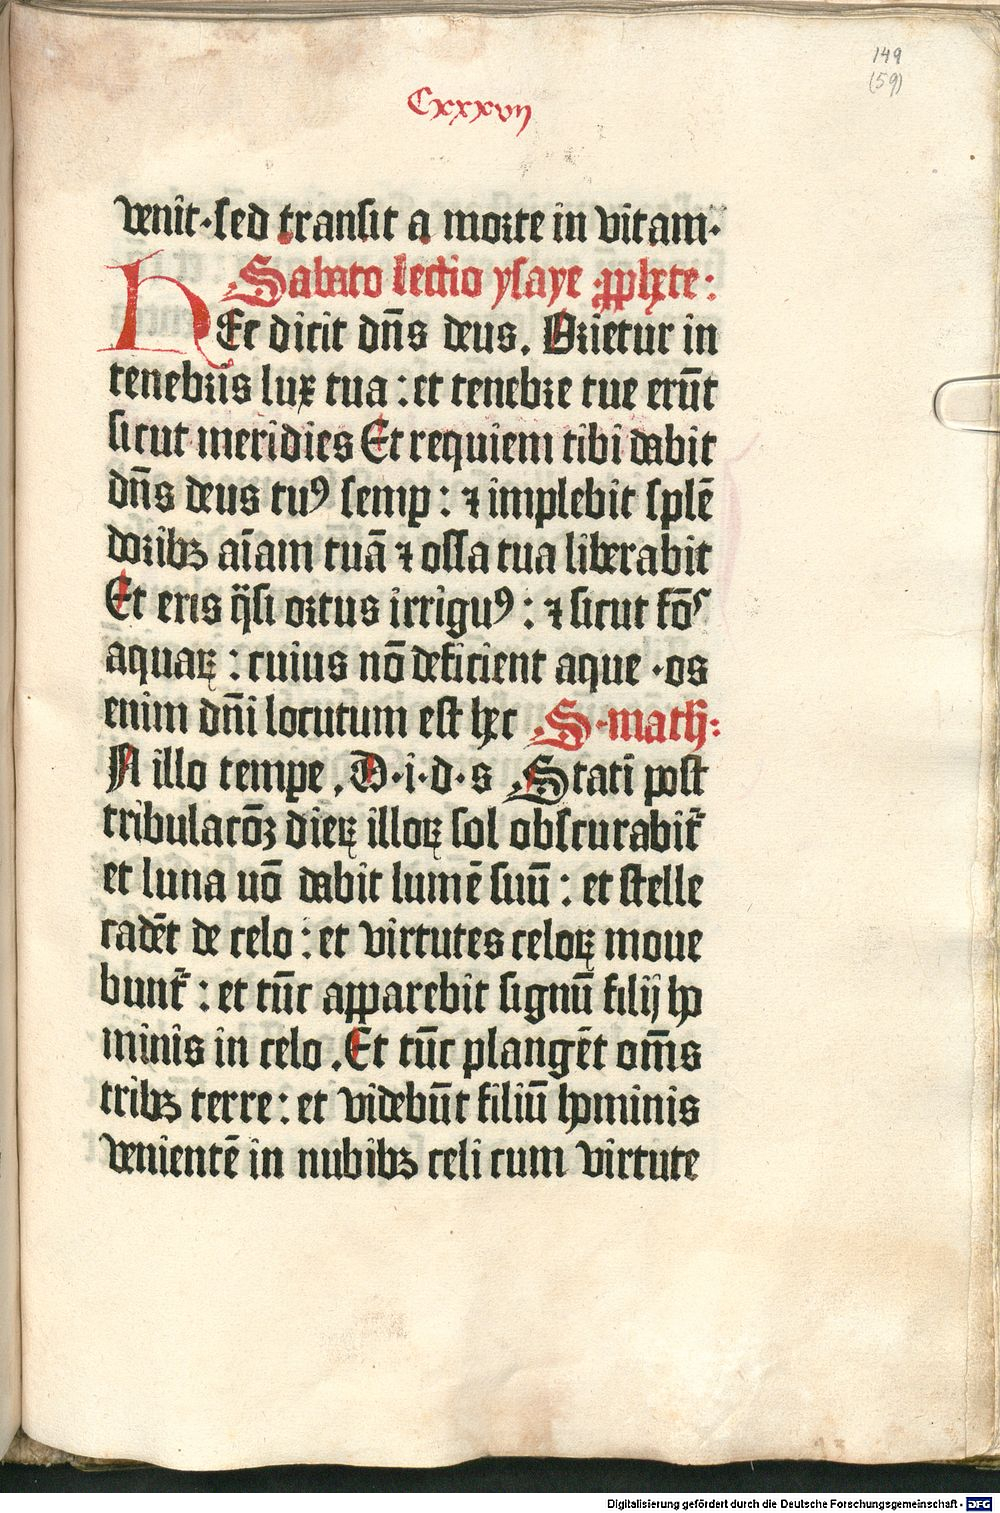 149
(59)
Cxxxvii
venit · sed transit a morte in vitam ·
Sabato lectio ysaye pphete :
HEc dicit dn̄s deus . Orietur in
tenebris lux tua : et tenebre tue erūt
sicut meridies Et requiem tibi dabit
dn̄s deus tuꝰ semꝑ : ⁊ implebit splē
doribꝫ aīam tuā ⁊ ossa tua liberabit
Et eris q̈si ortus irriguꝰ : ⁊ sicut fōs
aquaꝝ : cuius nō deficient aque · os
enim dn̄i locutum est hec S · math :
N illo tempe . D · i · d · s Stati post
tribulacōꝫ dieꝝ illoꝝ sol obscurabit̄
et luna nō dabit lumē suū : et stelle
cadēt de celo : et virtutes celoꝝ moue
bunt̄ : et tūc apparebit signū filij ho
minis in celo . Et tūc plangēt om̄s
tribꝫ terre : et videbūt filiū hominis
venientē in nubibꝫ celi cum virtute
Digitalisierung gefördert durch die Deutsche Forschungsgemeinschaft - DFG